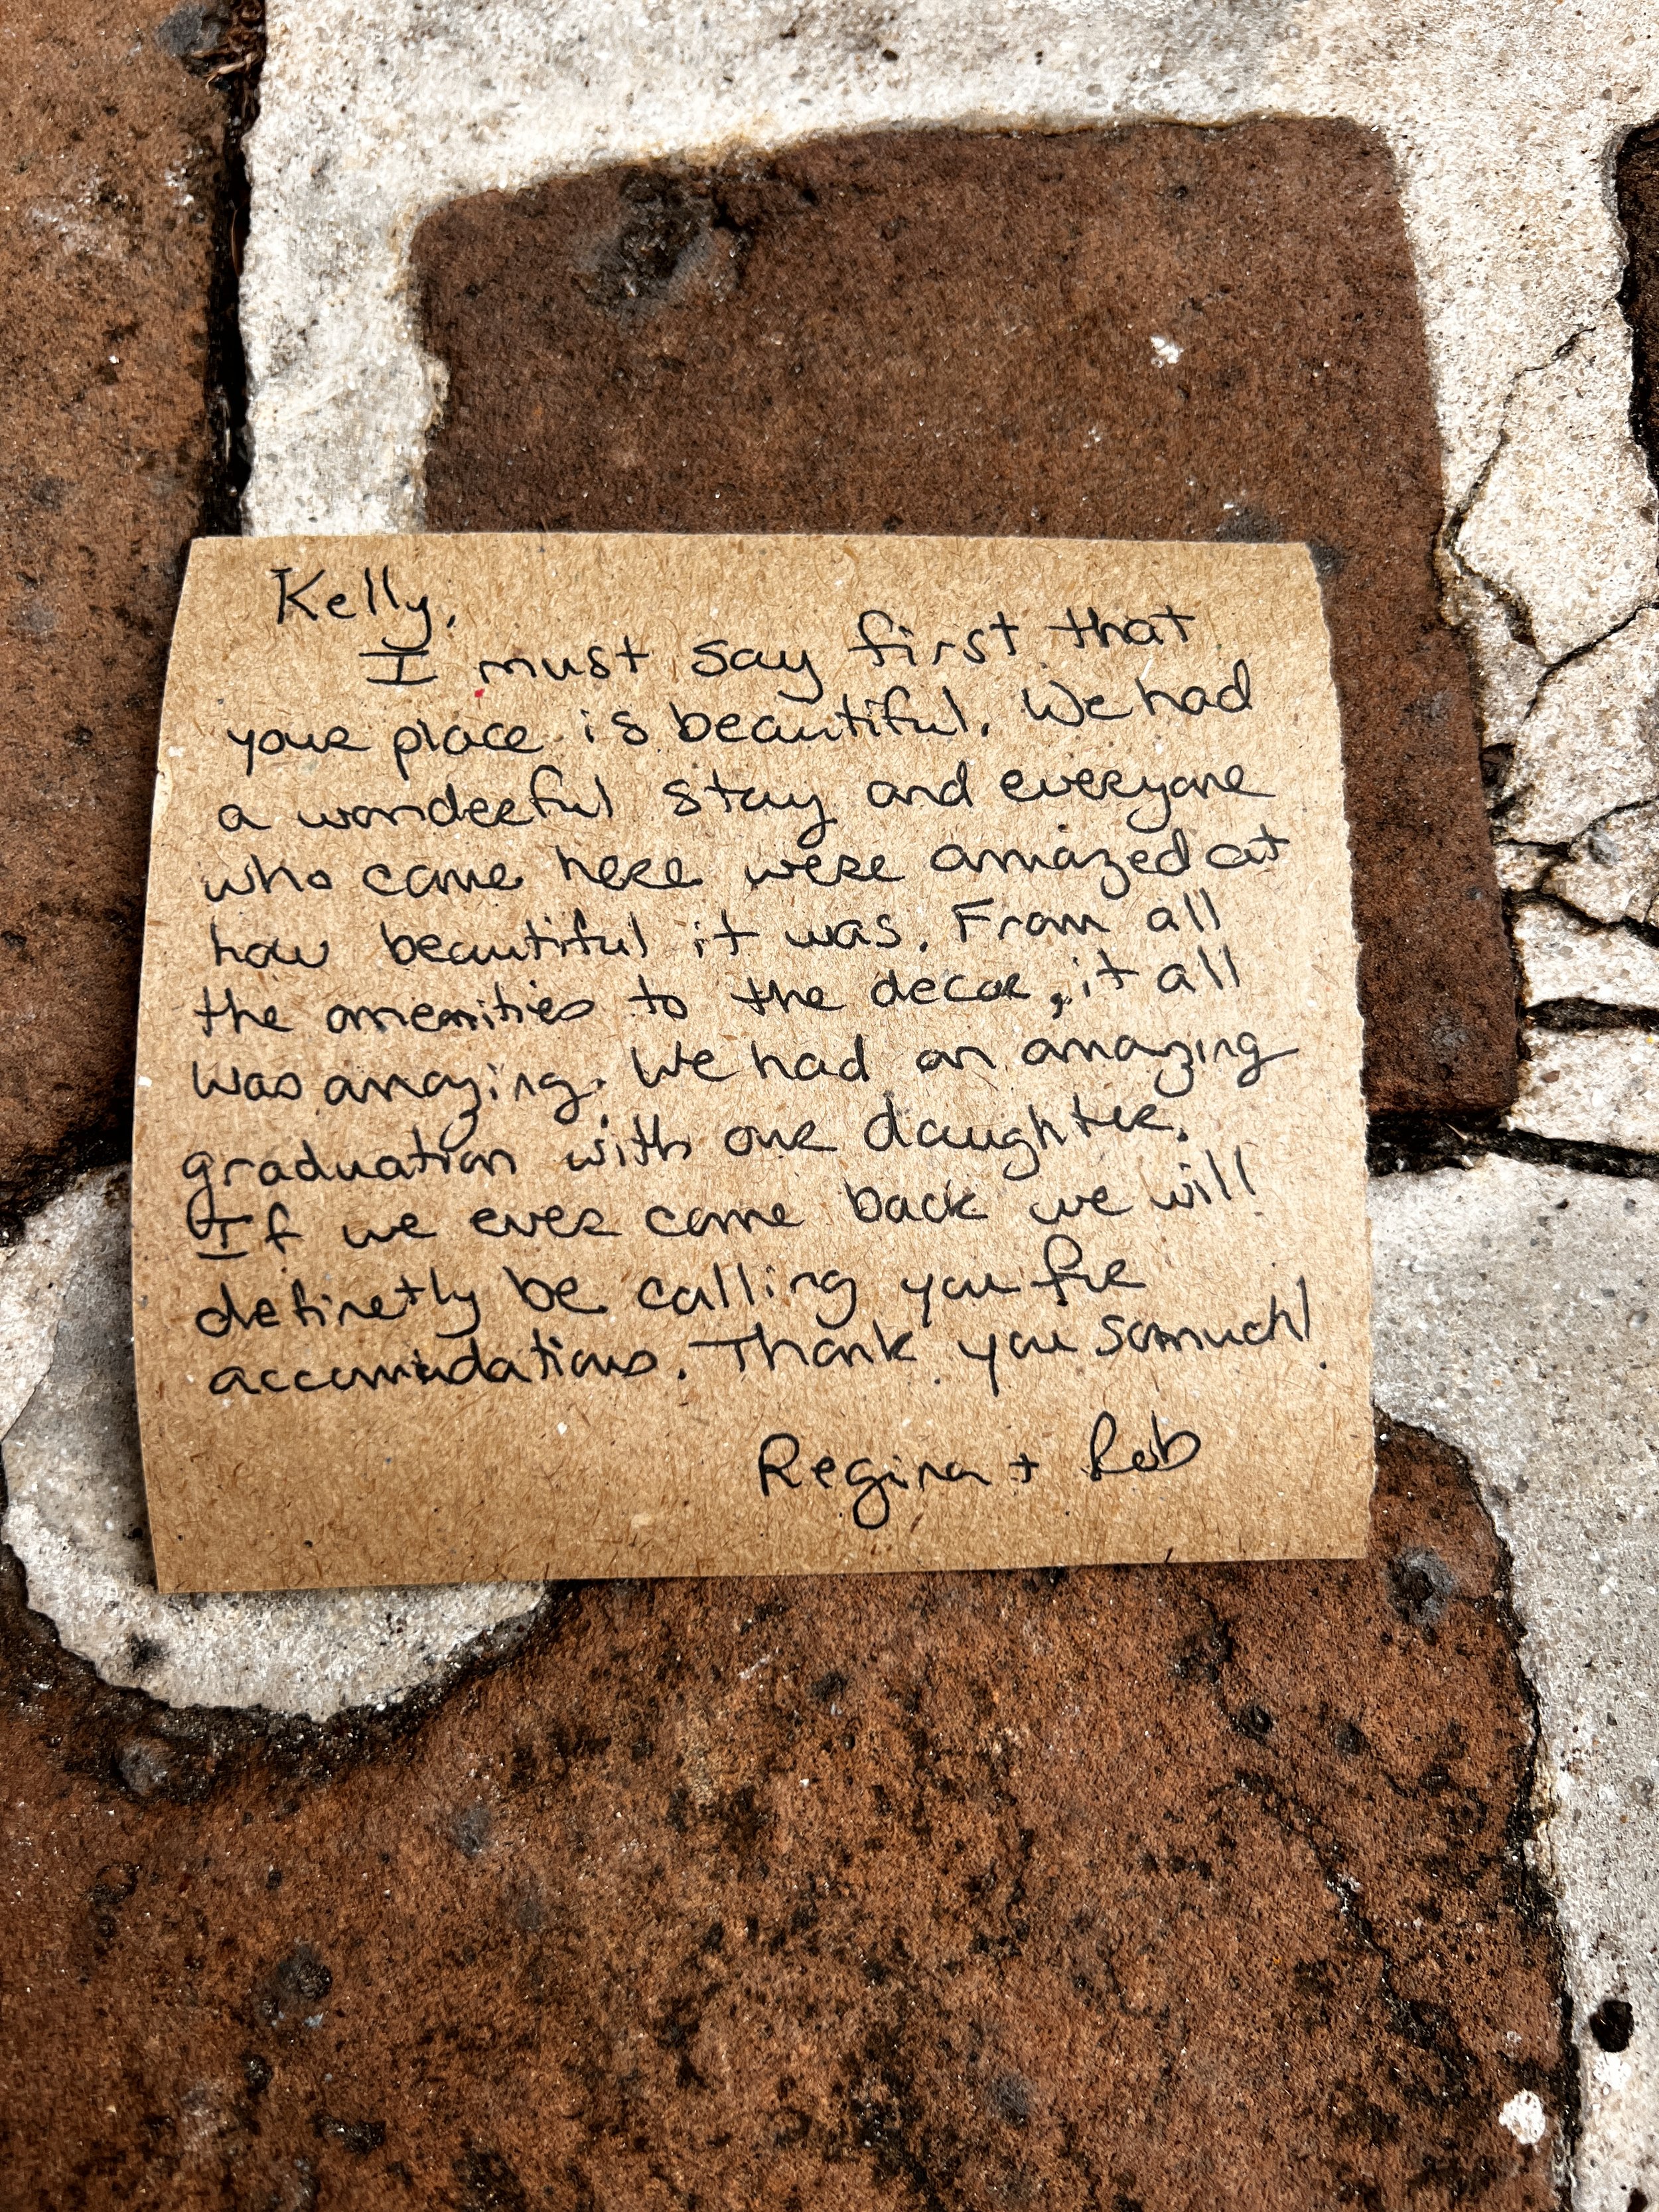 Kelly,
I must say first that
your place is beautiful. We had
a wonderful stay and everyone
who came here were amazed at
how beautiful it was. From all
the amenities to the decor, it all
was amazing. We had an amazing
graduation with our daughter.
If we ever come back we will
definetly be calling you for
accomodations. Thank you so much!
Regina + Rob